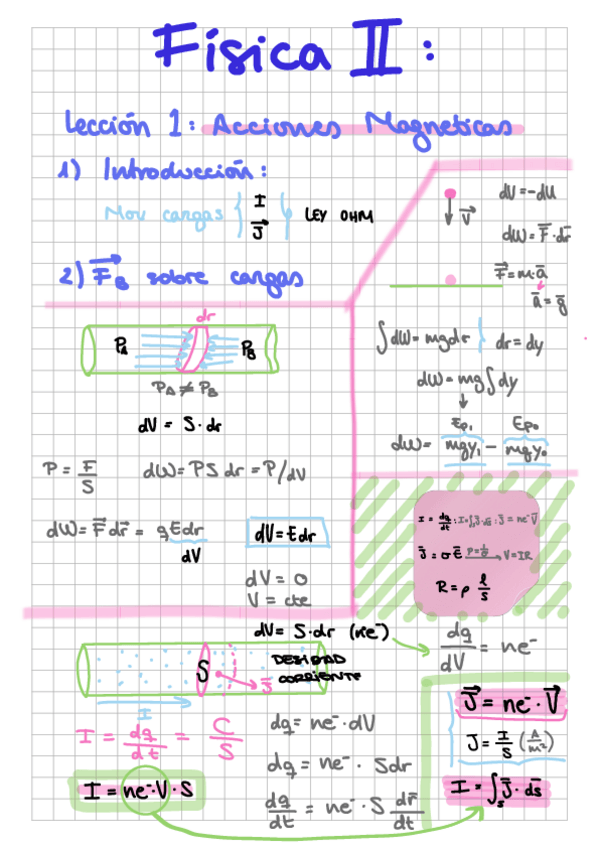 Física II:
Lección 1: Acciones Magneticas
1) Introducción:
Mov cargas { I
J⃗ } LEY OHM
2) F⃗B sobre cargas
dr
PA PB
PA ≠ PB
dV = S·dr
P = F/S dW = PS dr = P/dV
dW = F⃗ dr⃗ = qEdr
dV
dV = Edr
dV = 0
V = cte
V⃗
dV = -dU
dW = F⃗·dr⃗
F⃗ = m·a⃗
a⃗ = g⃗
∫dW = mgdr } dr = dy
dW = mg∫dy
Ep₁ Ep₀
dW = mgy₁ - mgy₀
I = dq/dt ; I = ∫s J⃗·ds⃗ ; J⃗ = ne⁻V⃗
J⃗ = σE⃗ ρ = 1/σ → V = IR
R = ρ l/s
dV = S·dr (ne⁻)
dq/dV = ne⁻
S
J⃗
I
DESIDAD
CORRIENTE
I = dq/dt = C/S
I = ne⁻·V·S
dq = ne⁻·dV
dq = ne⁻· Sdr
dq/dt = ne⁻·S dr⃗/dt
J⃗ = ne⁻·V⃗
J = I/S (A/m²)
I = ∫s J⃗·ds⃗